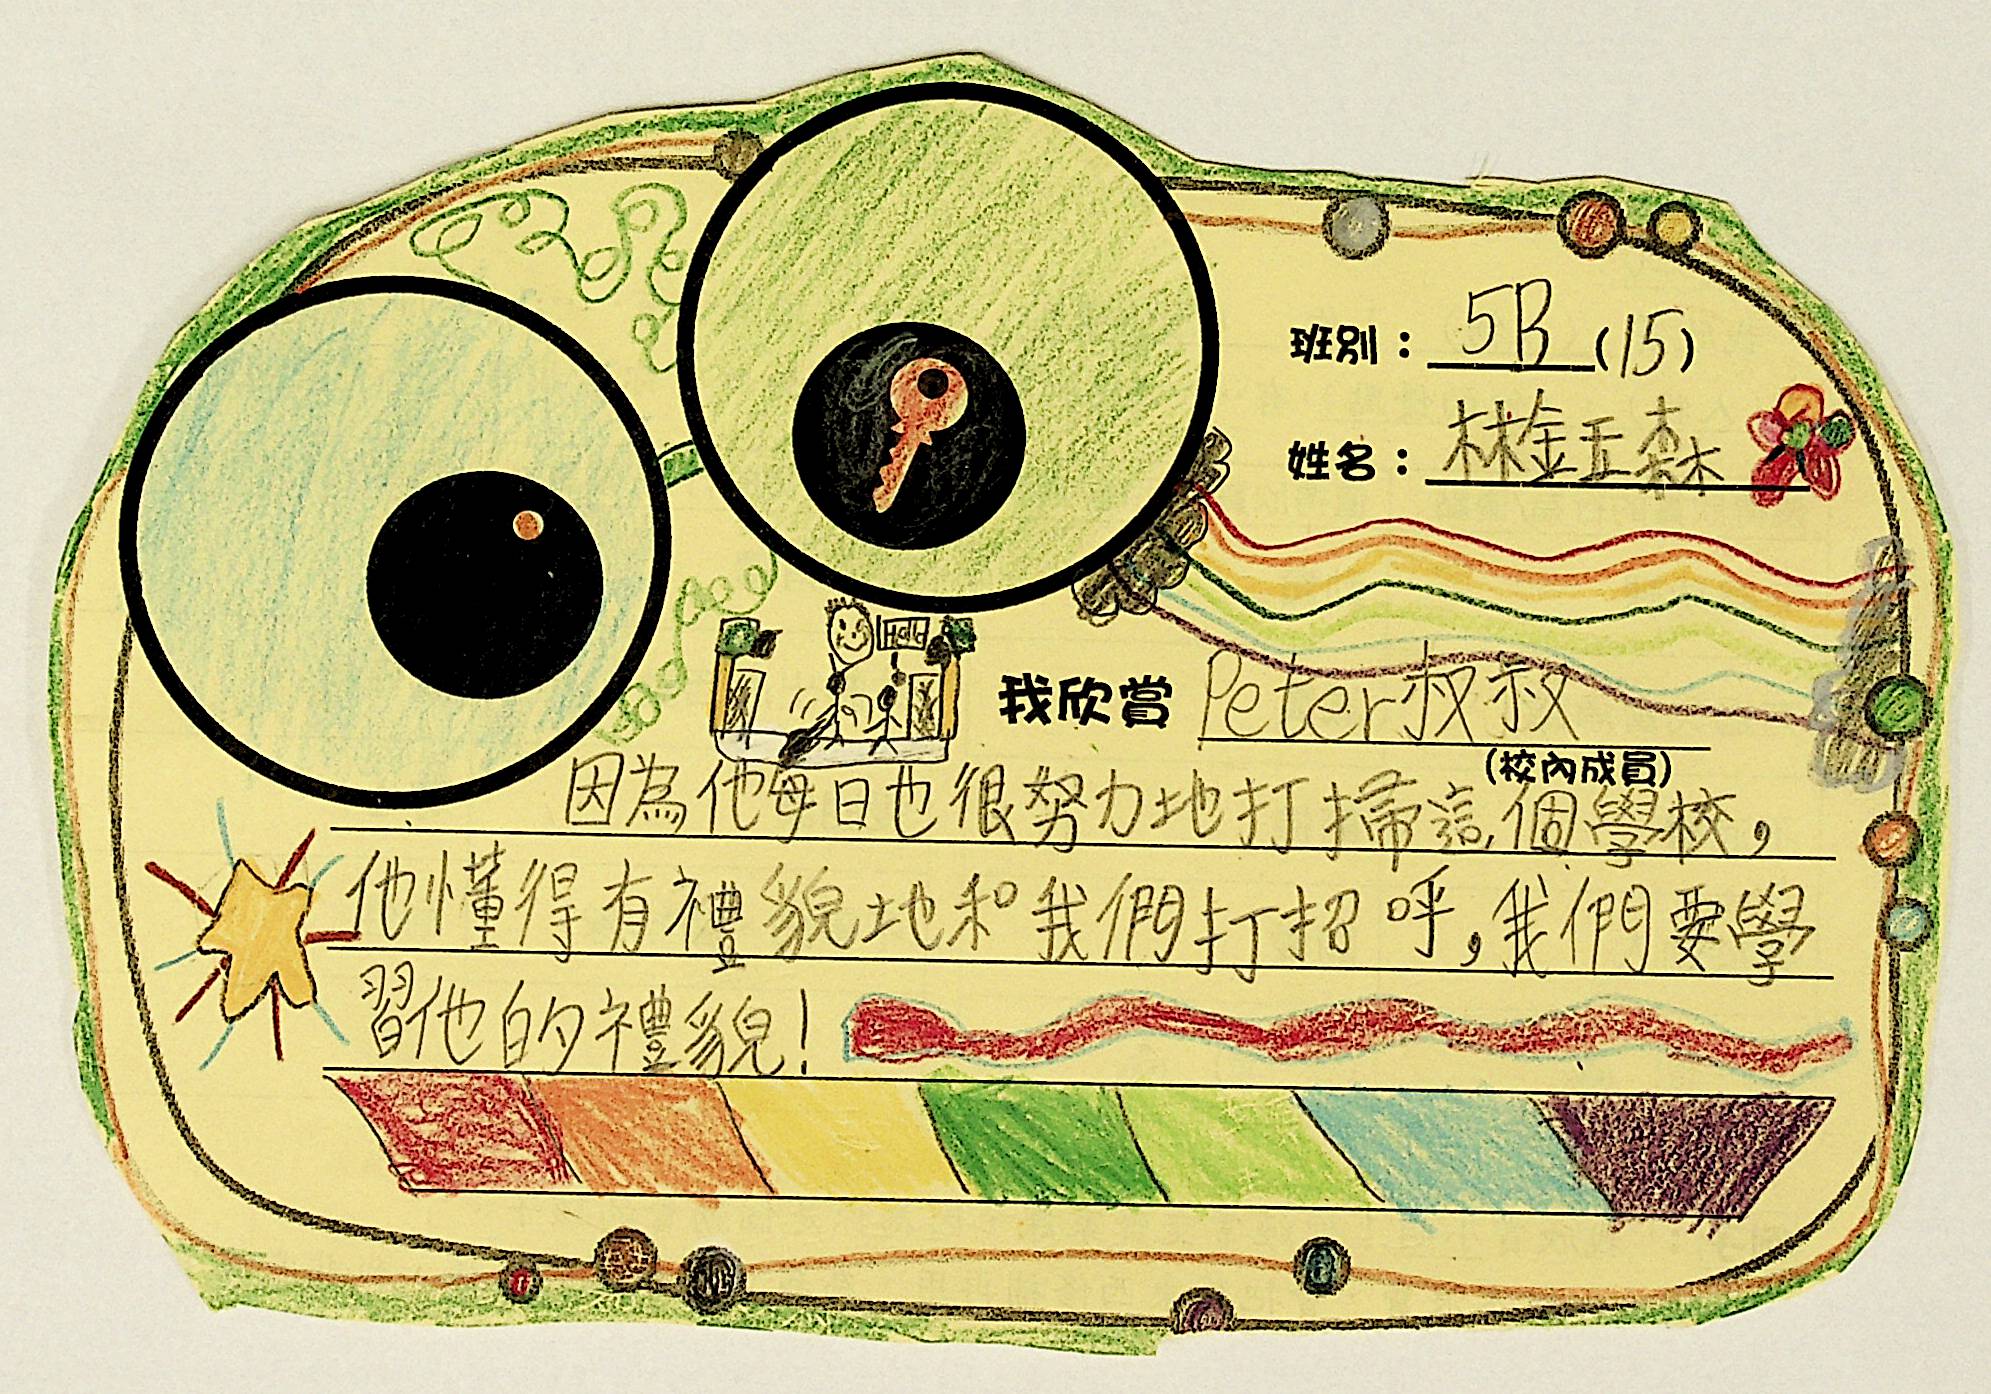 班別：5B(15)
姓名：林鈺森
Hello
我欣賞 Peter叔叔
(校內成員)
因為他每日也很努力地打掃這個學校，
他懂得有禮貌地和我們打招呼，我們要學
習他的禮貌！